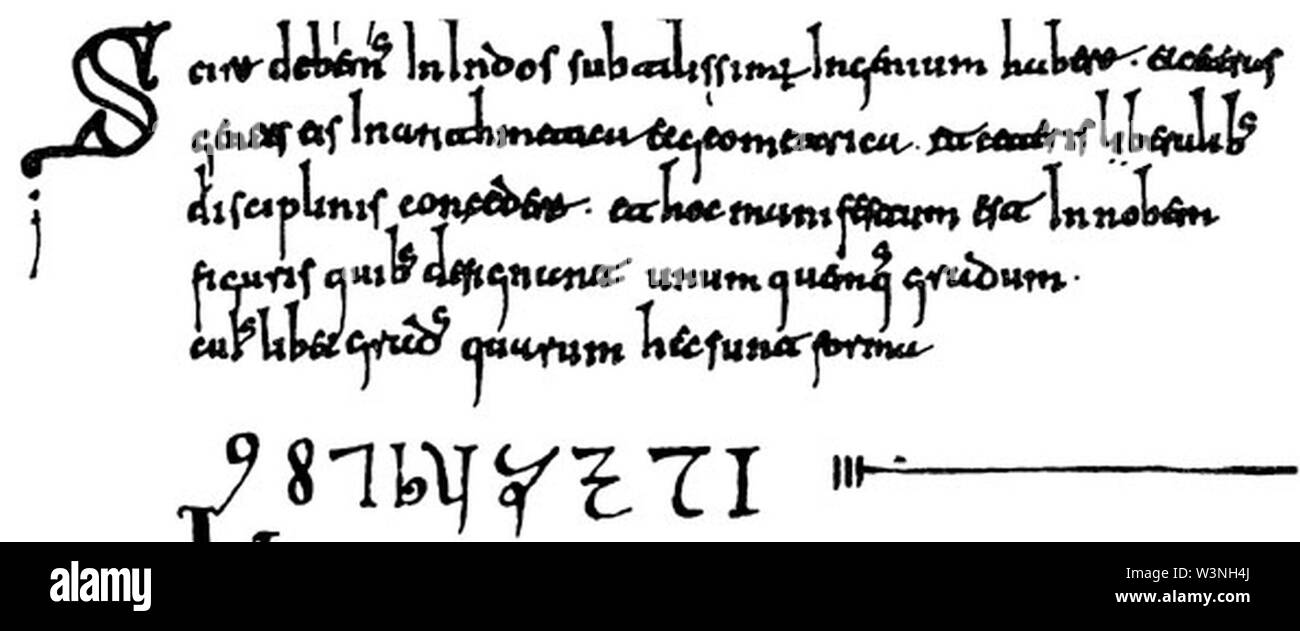 Scire debem̅s In Indos subtilissimu Ingenium habere. et ceteras
gintes eis In arithmetica et geometrica. et ceteris liberalibs
disciplinis concedere. et hoc manifestum est In nobem
figuris quibs designant unum quemqs gradum.
cuislibet grads quarum hec sunt forma
9 8 7 6 5 4 3 2 1
alamy
Image ID: W3NH4J
www.alamy.com